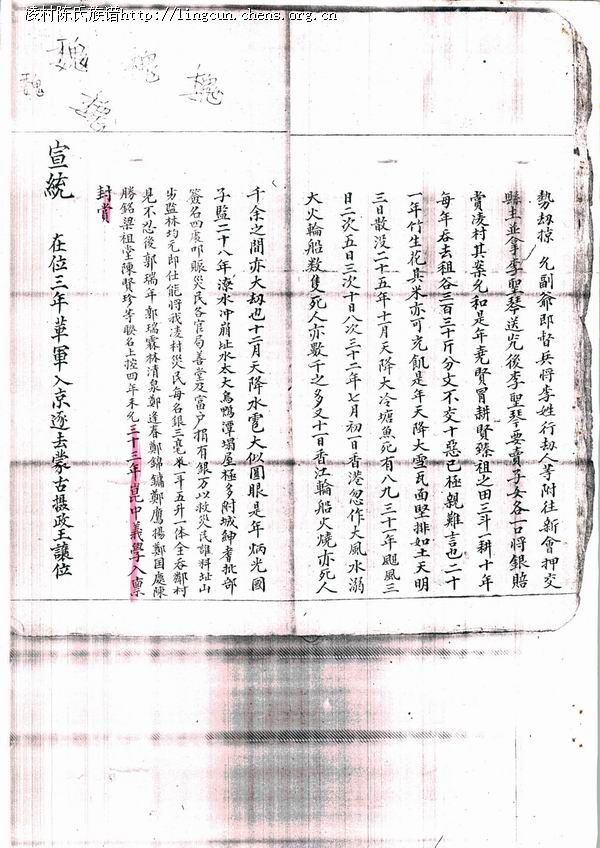 凌村陈氏族谱http://lingcun.chens.org.cn
魏
魏
魏
魏
勢刼掠 允副爺即督兵将李姓行刼人等附往新會押交
縣主並拿李聖琴送究後李聖琴要賣子女各一口將銀賠
賞凌村其案允和是年堯賢冒耕賢臻祖之田三斗一耕十年
每年吞去租谷三百三十斤分文不交十惡已極親难言也二十
一年竹生花其米亦可充飢是年天降大雪瓦面堅排如土天明
三日散没二十五年十月天降大冷塘魚死有八九三十一年颶風三
日二次五日三次十日八次三十二年七月初一日香港忽作大風水溺
大火輪船数隻死人亦數千之多又十一日香江輪船火燒亦死人
千余之間亦大刼也十二月天降水雹大似圓眼是年炳光國
子監二十八年潦水冲崩址水太大烏鴨潭塌屋極多附城紳耆批部
簽名四處叩賑災民各官局善堂及富户捐有銀万以救災民誰料址山
劣監林均元即仕能將我凌村災民每名銀三毫米斗五升一体全吞鄰村
見不忍後郭瑞年郭瑞霖林清泉鄭逢春鄭錦鏞鄭鷹揚鄭国處陳
勝銘梁祖堂陳賢珍等聯名上控四年未允三十三年崑中義學入禀
封賞
宣統 在位三年革軍入京逐去蒙古摄政王讓位